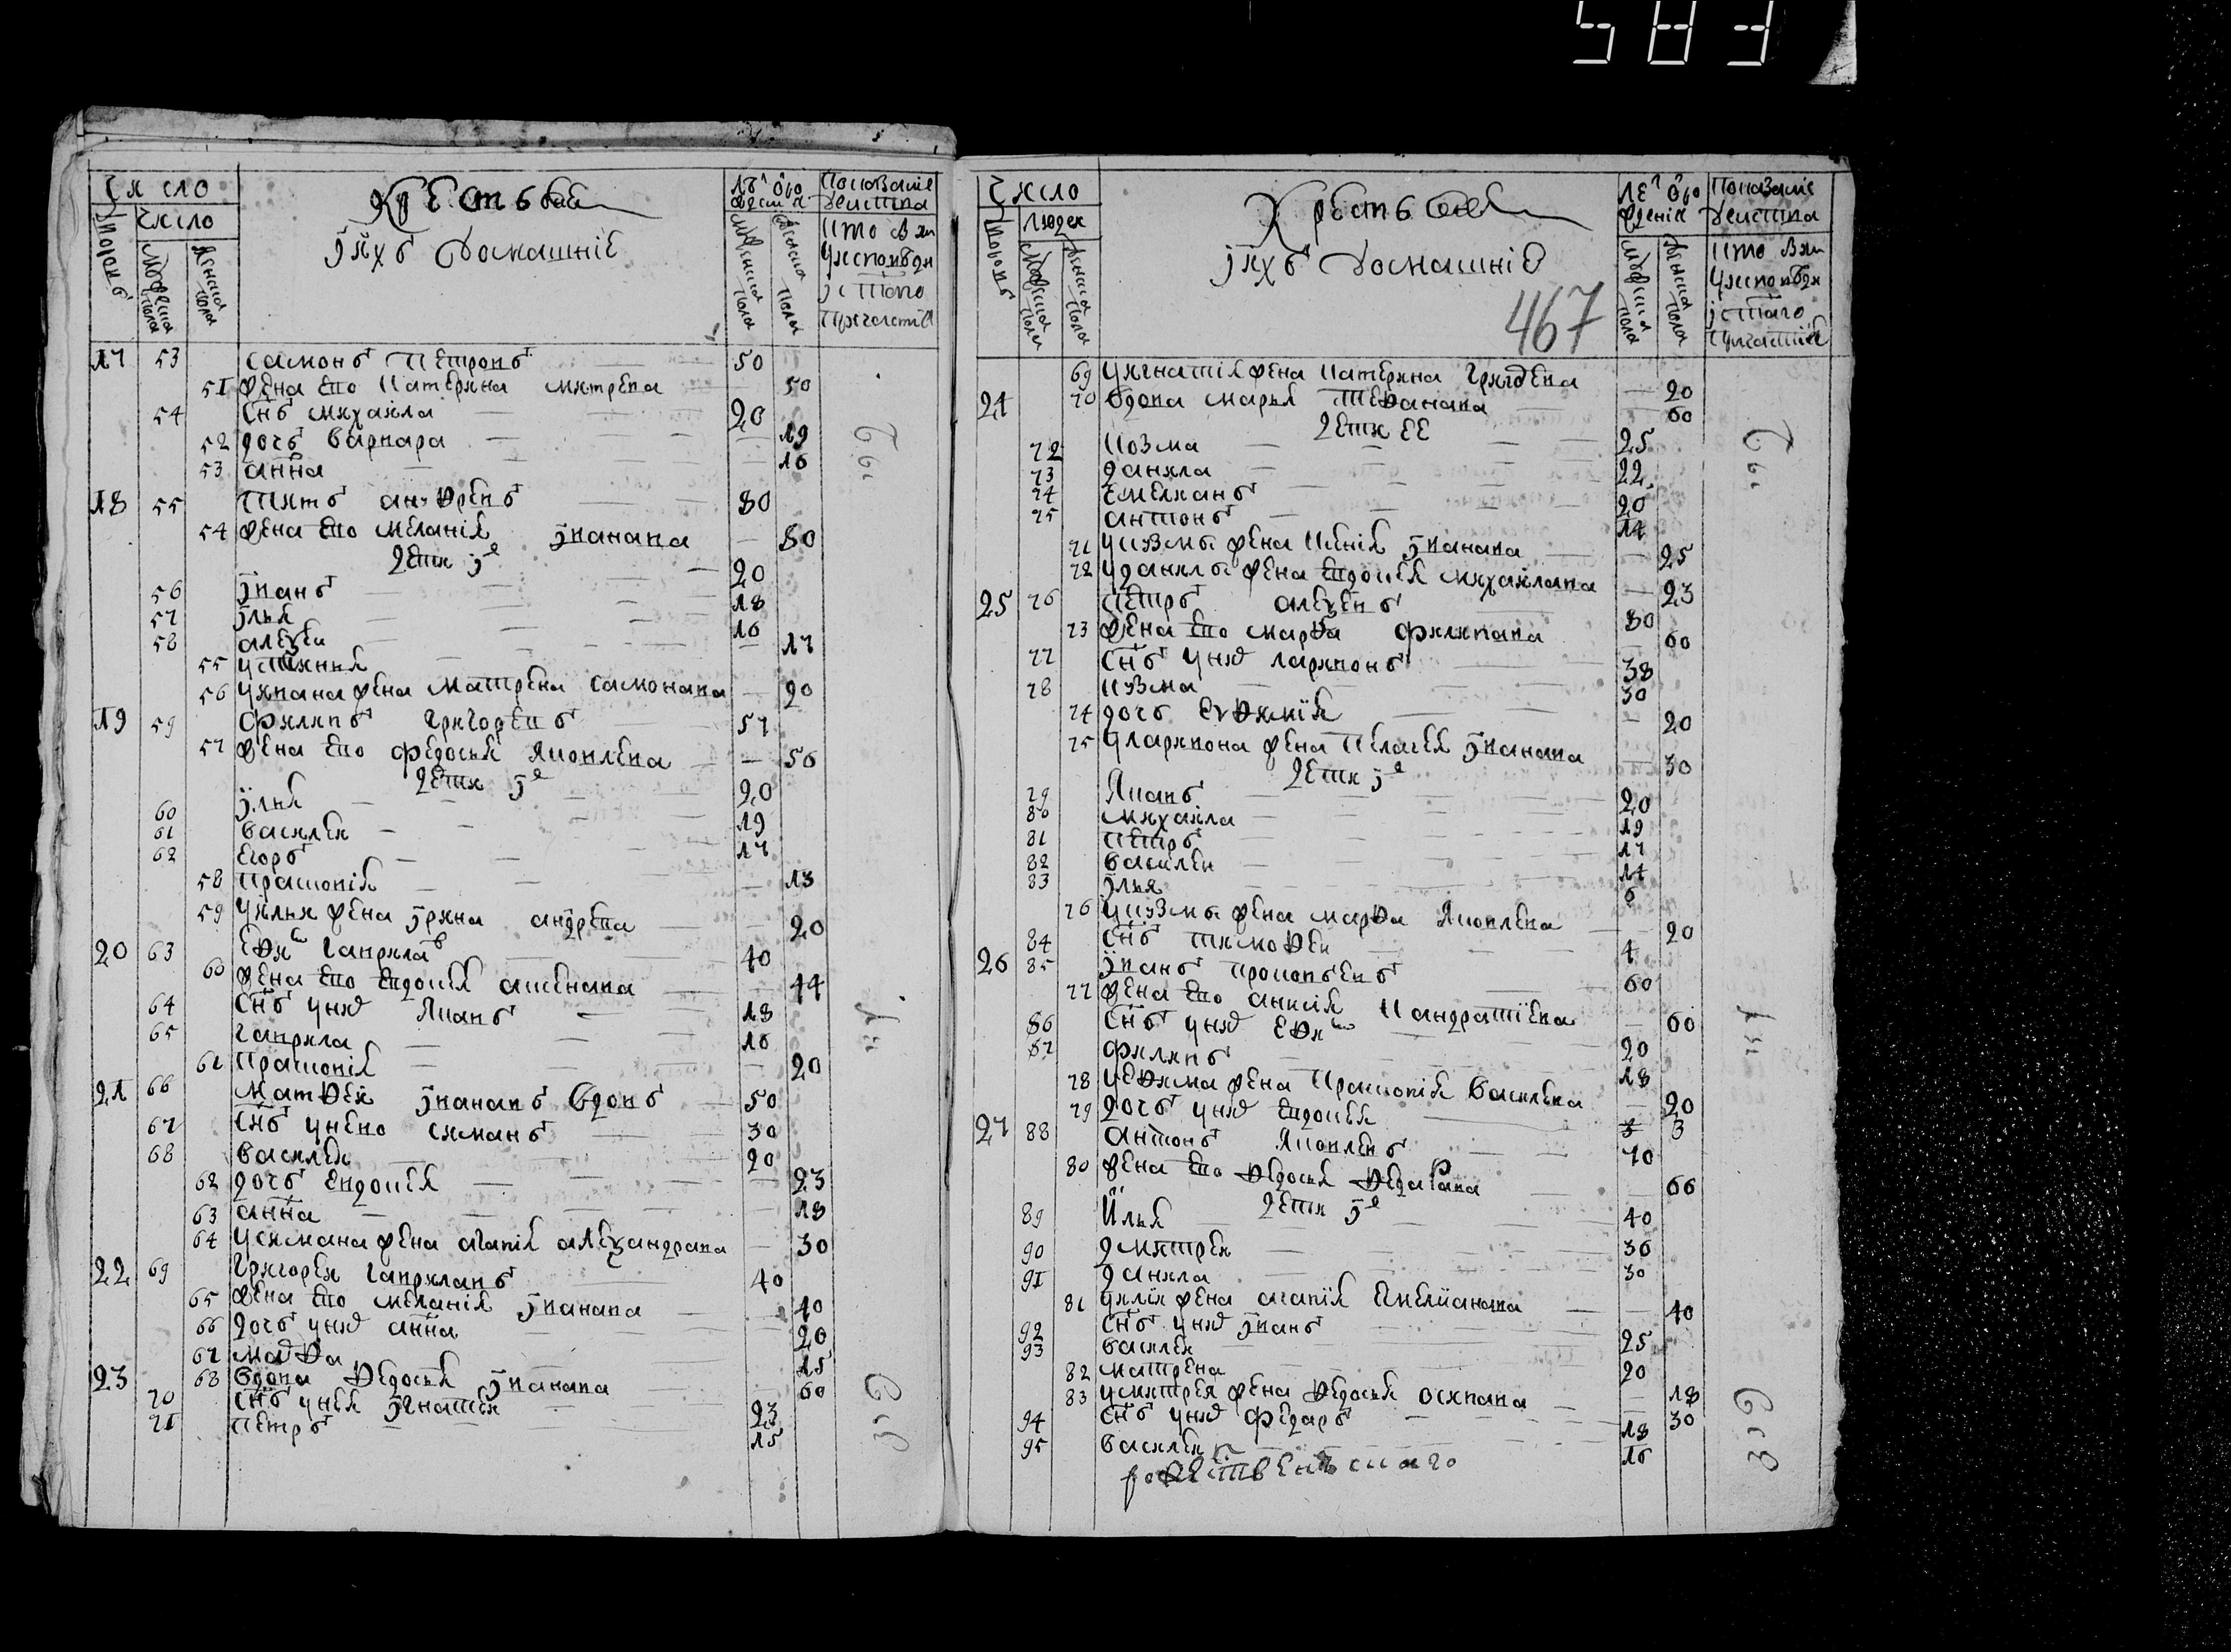 583
Число
Дворовъ
число
Мужеска пола
Женска пола
Крестьяне
и ихъ домашнїе
Мужеска пола
Женска пола
Показанїе действа
кто былъ
у исповеди
и с того
причастїя
17 53 Самонъ Петровъ 50
51 Жена его Катерина Митрева 50
54 Снъ Михаила 20
52 Дочь Варвара 19
53 Анна 16
18 55 Титъ Андреевъ 80
54 Жена его Меланїя Иванава 80
Дети их
56 Иванъ 20
57 Илья 18
58 Алеѯеи 16
55 Устинья 17
56 У Ивана жена Матрена Самонава 20
19 59 Филипъ Григорьевъ 57
57 Жена его Федосья Яковлева 56
Дети их
60 Илья 20
61 Василеи 19
62 Егоръ 17
58 Прасковїя 13
59 У Ильи жена Ирина Андрева 20
20 63 Ефи Гаврила 40
60 Жена его Евдокїя 44
64 Снъ у них Якавъ 18
65 Гаврила 16
61 Прасковїя 20
21 66 Матфеи Иванавъ вдовъ 50
67 Снъ у нево Симанъ 30
68 Василеи 20
62 Дочь Евдокея 23
63 Анна 18
64 У Симана жена Агапїя Алеѯандрава 30
22 69 Григореи Гаврилавъ 40
65 Жена его Меланїя Иванава 40
66 Дочь у них Анна 20
67 Мафа 15
23 68 Вдова Федосья Иванава 60
70 Снъ у нея Игнатеи 23
71 Петръ 15
Число
Дворовъ
Людеи
Мужеска пола
Женска пола
Крестьяне
и ихъ домашнїе
467
Мужеска пола
Женска пола
Показанїе действа
кто былъ
у исповеди
и с того
причастїя
69 У Игнатїя жена Катерина Григорева 20
24 70 Вдова Марья Степанава 60
Дети ее
72 Козма 25
73 Данила 22
74 Емелианъ 20
75 Антонъ 14
71 У Кузмы жена Иванава 25
72 У Данилы жена Евдокея Михаилава 23
25 76 Петръ Алеѯеевъ 80
73 Жена его Марфа Филипава 60
77 Снъ у них Ларивонъ 38
78 Кузма 30
74 Дочь Евфимїя 20
75 У Ларивона жена Пелагея Иванава 30
Дети их
79 Якавъ 20
80 Михаила 19
81 Петръ 17
82 Василеи 14
83 Илья 6
76 У Кузмы жена Марфа Яковлева 20
84 Снъ Тимофеи 4
26 85 Иванъ Прокопьевъ 60
77 Жена его Анисїя Кандратїева 60
86 Снъ у них Ефи 20
87 Филипъ 18
78 У Ефима жена Прасковїя Василева 20
79 Дочь у них Евдокея 3
27 88 Антонъ Яковлевъ 70
80 Жена его Федосья Федарава 66
Дети их
89 Илья 40
90 Дмитреи 36
91 Данила 30
81 У Илїи жена Агапїя Емелїанава 40
92 Снъ у них Иванъ 25
93 Василеи 20
82 Матрена 18
83 У Митрея жена Федосья Осипава 30
94 Снъ у них Федаръ 18
95 Василеи 16
рожественъскаго